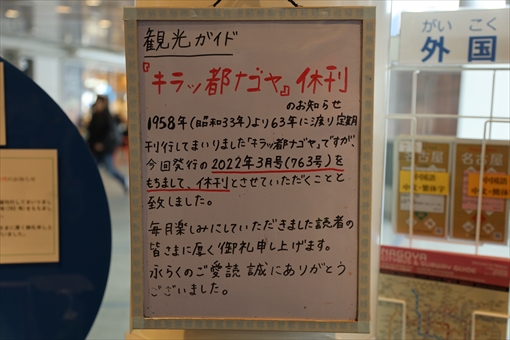 観光ガイド
『キラッ都ナゴヤ』休刊
のお知らせ
1958年(昭和33年)より63年に渡り定期
刊行してまいりました「キラッ都ナゴヤ」ですが、
今回発行の2022年3月号(763号)を
もちまして、休刊とさせていただくことと
致しました。
毎月楽しみにしていただきました読者の
皆さまに厚く御礼申し上げます。
永らくのご愛読 誠にありがとう
ございました。
がいこく
外国
名古屋
中国語
中文・繁体字
名古屋
中国語
NAGOYA